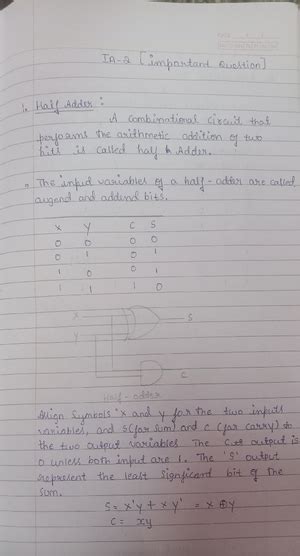 IA-2 [important Question]
1. Half Adder :
A combinational circuit that
performs the arithmetic addition of two
bits is called half Adder.
The input variables of a half-adder are called
augend and addend bits.
X Y C S
0 0 0 0
0 1 0 1
1 0 0 1
1 1 1 0
X
S
Y
C
Half-adder
Align Symbols 'x and y for the two inputs
variables, and S(for sum) and C (for carry) to
the two output variables The C output is
0 unless both input are 1. The 'S' output
represent the least Significant bit of the
Sum.
S = x'y + xy' = x ⊕ y
C = xy